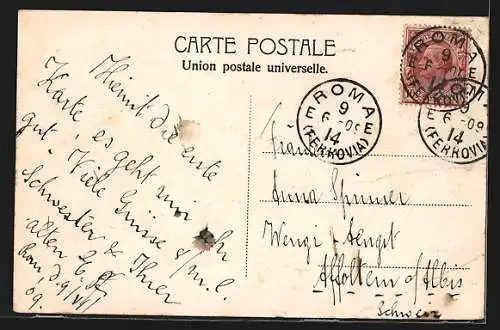 CARTE POSTALE
Union postale universelle.
ROMA
9
6 - 09
14
(FERROVIA)
ROMA
9
6 - 09
14
(FERROVIA)
Hiemit die erste
Karte, es geht mir
gut. Viele Grüsse a/m. l.
Schwester & Ihrer
alten
Rom d. 9/VI
09.
Anna Spinner
Wengi-
Affoltern a/Albis
Schweiz